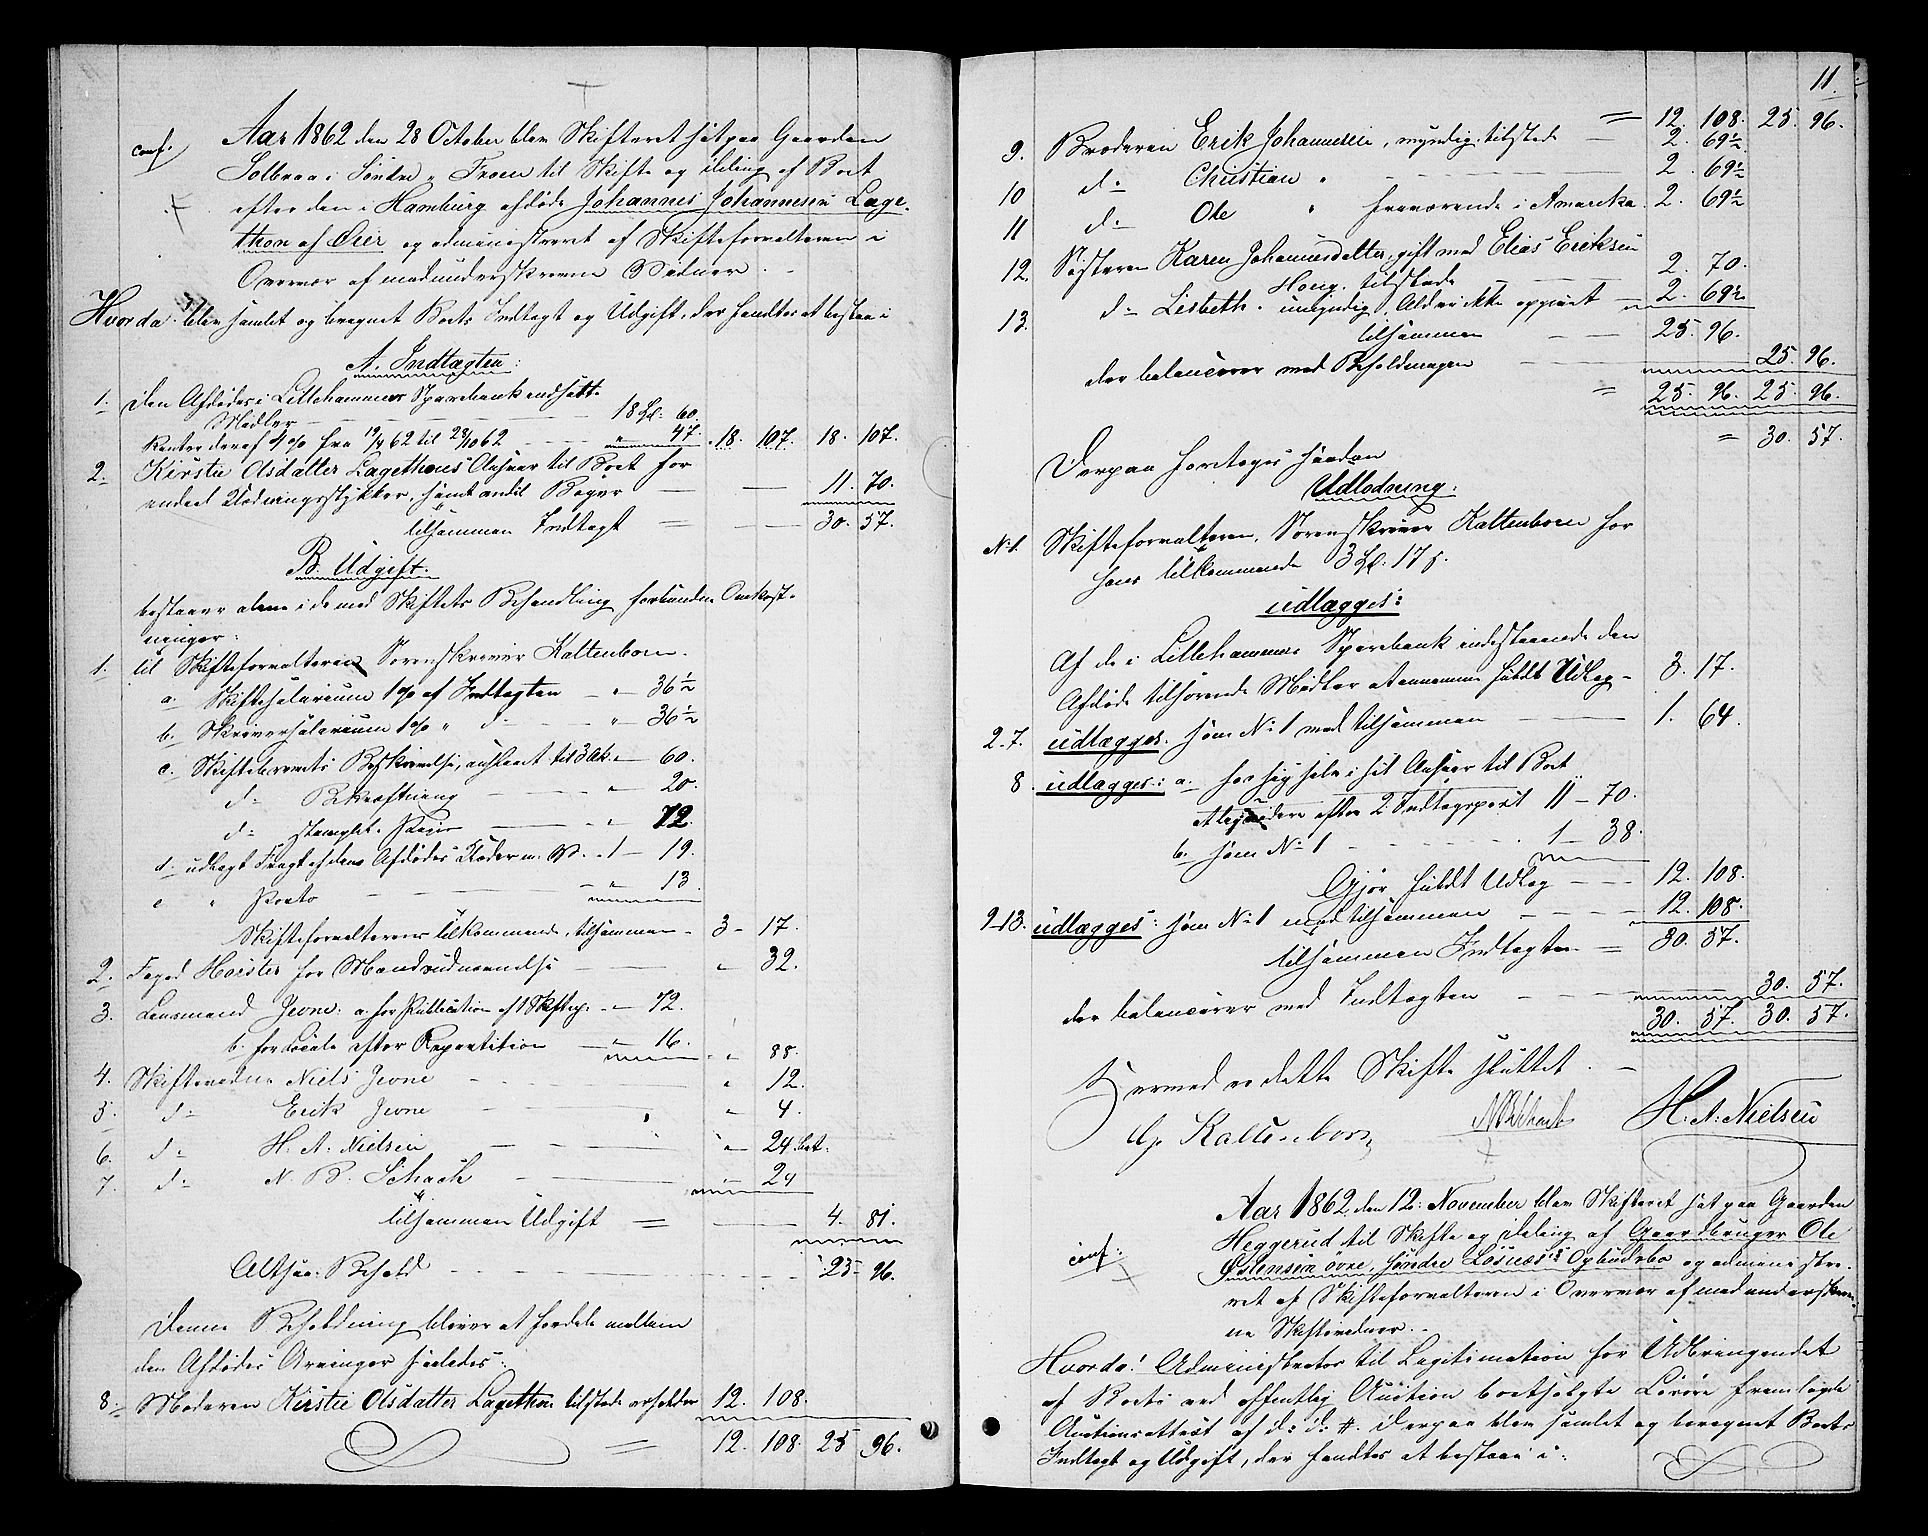 conf. Aar 1862 den 28 October blev Skifteret sat paa Gaarden
Solbraa i Søndre Froen til Skifte og Deling af Boet
efter den i Hamburg afdøde Johannes Johannesen Lage-
thon af Øier og administreret af Skifteforvalteren i
Overvær af medunderskrevne Vidner.
Hvorda blev samlet og beregnet Boets Indtægt og Udgift, der fandtes at bestaa i
A. Indtægten:
1. Den Afdødes i Lillehammers Sparebank indsatte
Midler 18 Spd. 60.
Renter deraf 4 % fra 19/4 62 til 28/10 62 " 47. 18. 107. 18. 107.
2. Kirstie Olsdatter Lagethons Ansvar til Boet for
endeel Klædningsstykker, samt endel Bøger 11. 70.
tilsammen Indtægt = 30. 57.
B. Udgift.
bestaaer alene i de med Skiftets Behandling forbundne Omkost-
ninger:
1. til Skifteforvalteren Sorenskriver Kaltenborn.
a. Skiftesalarium 1 % af Indtægten " 36½
b. Skriversalarium 1 % " d° " 36½
c. Skiftebrevets Beskrivelse, anslaaet til 3 Ark " 60.
d° Bekræftning " 20.
d° stemplet Papir " 72.
d. udlagt Fragt af den Afdødes Klæder m. V. 1 - 19.
e " Porto " 13.
Skifteforvalterens tilkommende, tilsammen 3 - 17.
2. Foged Horster for Mandsudnævnelse " 32.
3. Lensmand Jevne: a. for Publication af 1 Skiftep. " 72.
b. for Locale efter Repartition " 16. " 88.
4. Skiftevidne Niels Jevne " 12.
5. d° Erik Jevne " 4.
6. d° H. A. Nielsen " 24 bet.
7. d° N. B. Schach " 24
tilsammen Udgift = 4. 81.
Altsaa Behold 25 - 96.
Denne Beholdning bliver at fordele mellem
den Afdødes Arvinger saaledes:
8. Moderen Kirstie Olsdatter Lagethon tilstede erholder 12. 108.
= 12. 108. 25 96.
11.
= 12. 108. 25. 96.
9. Broderen Erik Johannesen, myndig, tilstede 2. 69½
10 d° Christian " 2. 69½
11 d° Ole " fraværende i Amerika 2. 69½
12. Søsteren Karen Johannesdatter, gift med Elias Eriksen
Haug, tilstede 2. 70.
13. d° Lisbeth " umyndig, Alder ikke opgivet 2. 69½
tilsammen 25. 96.
der balancerer med Beholdningen 25. 96.
= 25. 96. 25. 96.
= 30. 57.
Derpaa foretoges saadan
Udlodning:
N° 1. Skifteforvalteren, Sorenskriver Kaltenborn for
hans tilkommende 3 Spd. 17 s.
udlægges:
Af de i Lillehammers Sparebank indestaaende den
Afdøde tilhørende Midler at annamme fuldt Udlæg 3. 17.
2-7. udlægges som N° 1 med tilsammen 1. 64.
8. udlægges: a. hos sig selv i sit Ansvar til Boet
at liqvidere efter 2. Indtægtspost 11 - 70.
b. som N° 1 1 - 38.
Gjør fuldt Udlæg 12. 108.
9-13. udlægges: som N° 1 med tilsammen 12. 108.
tilsammen Indtægten = 30. 57.
der balancerer med Indtægten 30. 57.
30. 57. 30. 57.
Hermed er dette Skifte sluttet.
Kaltenborn NBSchach H. A. Nielsen
conf. Aar 1862, den 12. November blev Skifteret sat paa Gaarden
Heggerud til Skifte og Deling af Gaardbruger Ole
Østensen øvre, søndre Losnæs's Opbudsbo og administre-
ret af Skifteforvalteren i Overvær af medunderskrev-
ne Skiftevidner.
Hvorda: Administrator til Legitimation for Udbringendet
af Boets ved offentlig Auction bortsolgte Løsøre fremlagde
Auctionsattest af d: d: #. Derpaa blev samlet og beregnet Boets
Indtægt og Udgift, der fandtes at bestaa i: